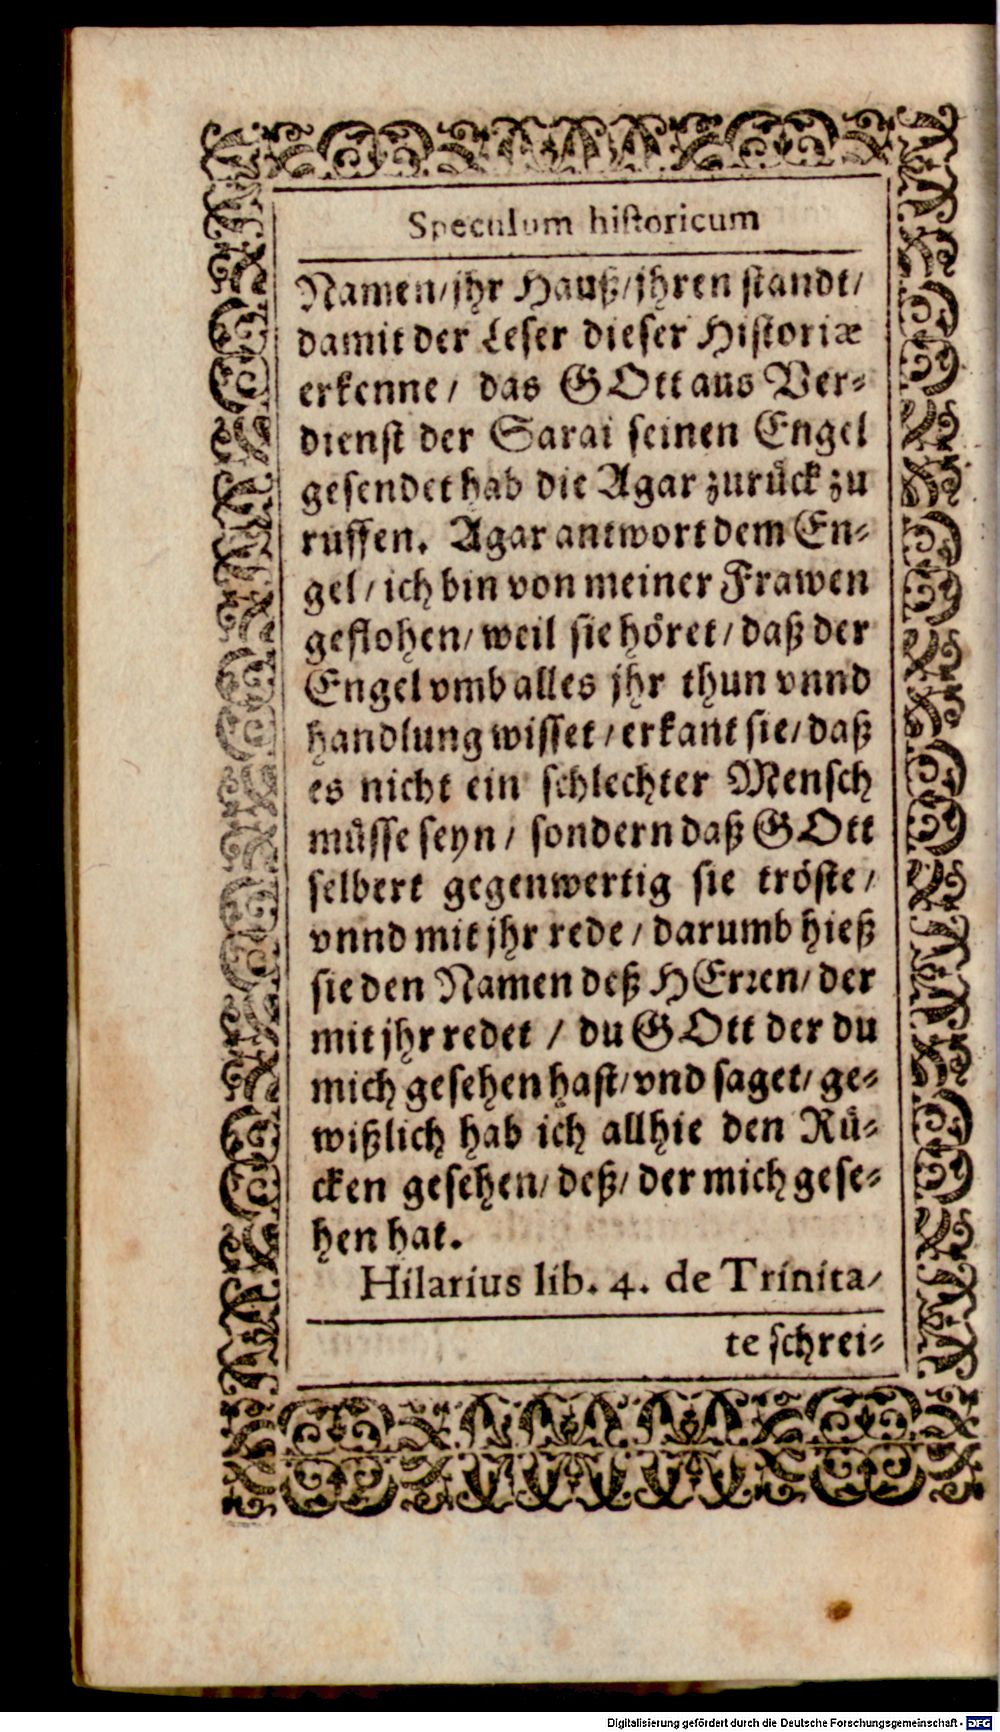 Speculum historicum
Namen/ jhr Hauß/ jhren standt/
damit der Leser dieser Historiæ
erkenne/ das GOtt aus Ver-
dienst der Sarai seinen Engel
gesendet hab die Agar zurück zu
ruffen. Agar antwort dem En-
gel/ ich bin von meiner Frawen
geflohen/ weil sie höret/ daß der
Engel vmb alles jhr thun vnnd
handlung wisset/ erkant sie/ daß
es nicht ein schlechter Mensch
müsse seyn/ sondern daß GOtt
selbert gegenwertig sie tröste/
vnnd mit jhr rede/ darumb hieß
sie den Namen deß HErren/ der
mit jhr redet / du GOtt der du
mich gesehen hast/ vnd saget/ ge-
wißlich hab ich allhie den Rü-
cken gesehen/ deß/ der mich gese-
hen hat.
Hilarius lib. 4. de Trinita-
te schrei-
Digitalisierung gefördert durch die Deutsche Forschungsgemeinschaft - DFG